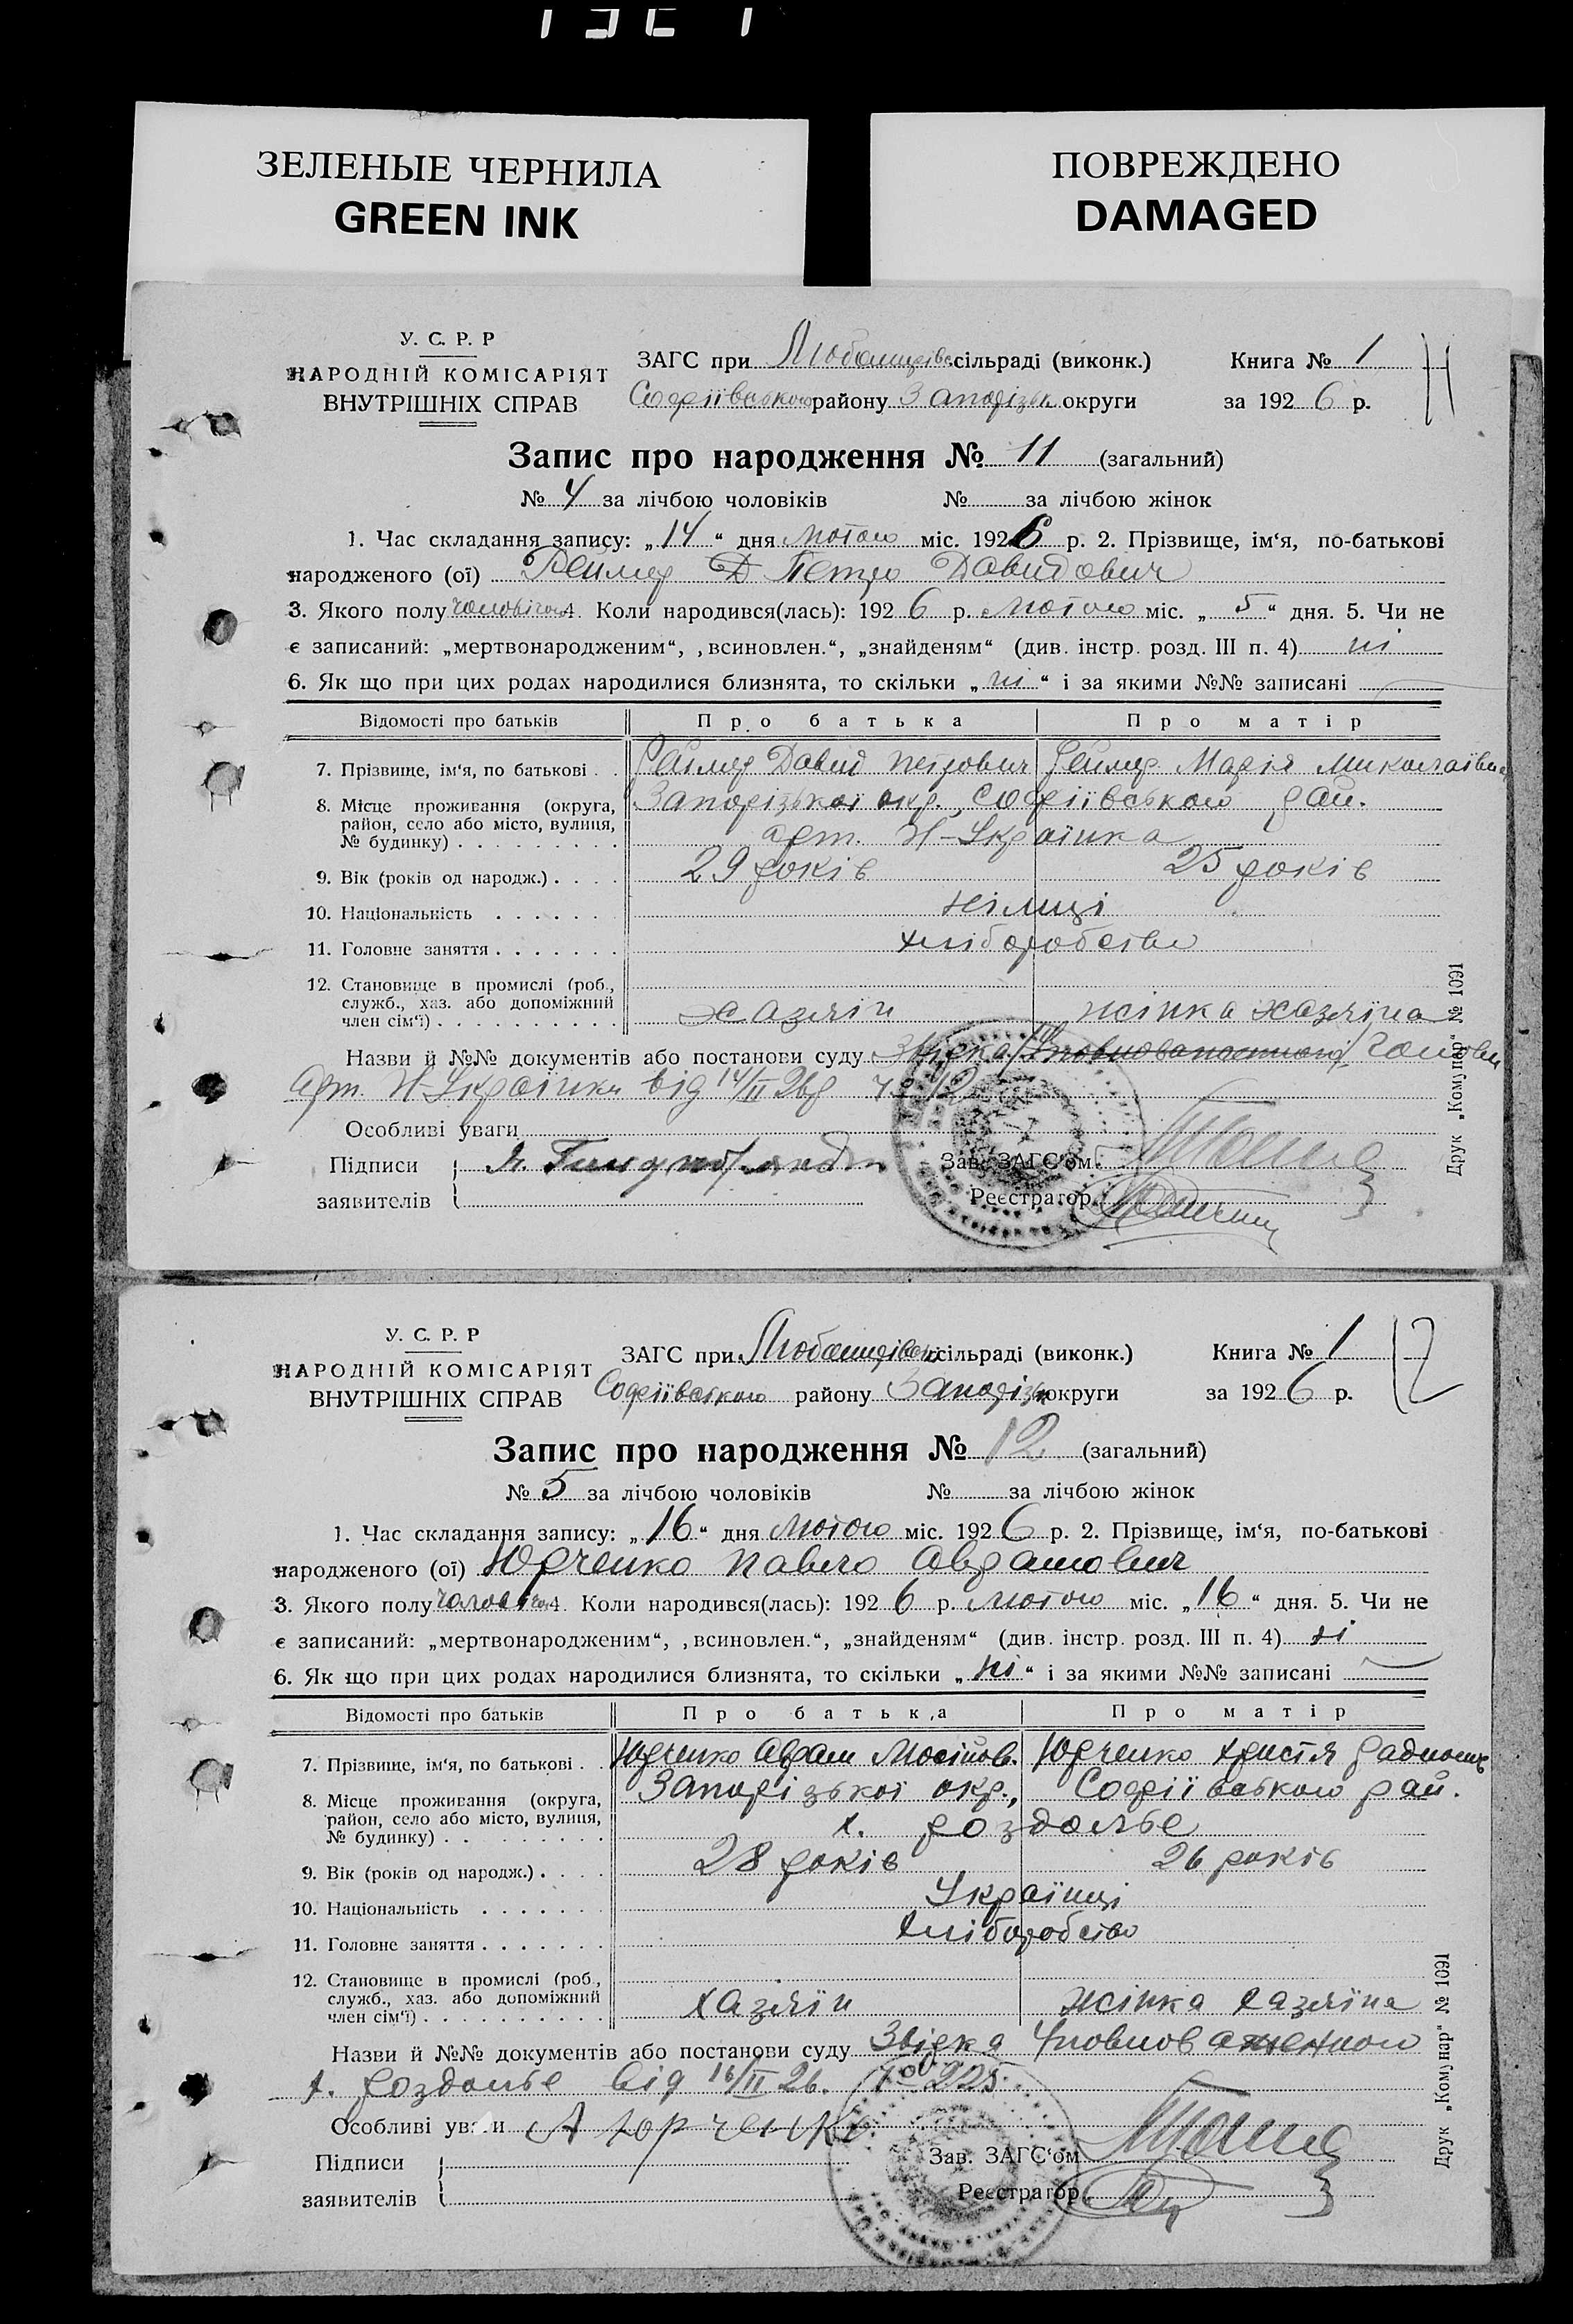 ЗЕЛЕНЫЕ ЧЕРНИЛА
GREEN INK
ПОВРЕЖДЕНО
DAMAGED
У. С. Р. Р
НАРОДНІЙ КОМІСАРІЯТ
ВНУТРІШНІХ СПРАВ
ЗАГС при Любомирівс. сільраді (виконк.) Книга № 1 11
Софіївського району Запорізьк округи за 1926 р.
Запис про народження № 11 (загальний)
№ 4 за лічбою чоловіків № за лічбою жінок
1. Час складання запису: „14“ дня лютого міс. 1926 р. 2. Прізвище, ім‘я, по-батькові
народженого (ої) Реймер Д Петро Давидович
3. Якого полу чоловічого 4. Коли народився(лась): 1926 р. лютого міс. „5“ дня. 5. Чи не
є записаний: „мертвонародженим“, ‚всиновлен.“, „знайденям“ (див. інстр. розд. III п. 4) ні
6. Як що при цих родах народилися близнята, то скільки „ні“ і за якими №№ записані
Відомості про батьків Про батька Про матір
7. Прізвище, ім‘я, по батькові . . Реймер Давид Петрович Реймер Марія Миколаївна
8. Місце проживання (округа, район, село або місто, вулиця, № будинку) Запорізької окр. Софіївського рай.
арт. Н-Українка
9. Вік (років од народж.) 29 років 25 років
10. Національність німці
11. Головне заняття хліборобство
12. Становище в промислі (роб., служб., хаз. або допоміжний член сім‘ї) хазяїн жінка хазяїна
Назви й №№ документів або постанови суду Звірка Уповноваженного Голови
арт. Н-Українки від 14/II 26р № 12
Особливі уваги
Підписи
заявителів
Зав. ЗАГС‘ом
Реєстратор
Друк „Комунар“ № 1091
У. С. Р. Р
НАРОДНІЙ КОМІСАРІЯТ
ВНУТРІШНІХ СПРАВ
ЗАГС при Любомирівськ. сільраді (виконк.) Книга № 1 12
Софіївського району Запорізьк округи за 1926 р.
Запис про народження № 12 (загальний)
№ 5 за лічбою чоловіків № за лічбою жінок
1. Час складання запису: „16“ дня лютого міс. 1926 р. 2. Прізвище, ім‘я, по-батькові
народженого (ої) Юрченко Павло Аврамович
3. Якого полу чоловічог 4. Коли народився(лась): 1926 р. лютого міс. „16“ дня. 5. Чи не
є записаний: „мертвонародженим“, ‚всиновлен.“, „знайденям“ (див. інстр. розд. III п. 4) ні
6. Як що при цих родах народилися близнята, то скільки „ні“ і за якими №№ записані
Відомості про батьків Про батька Про матір
7. Прізвище, ім‘я, по батькові . . Юрченко Аврам Мосійов. Юрченко Христя
8. Місце проживання (округа, район, село або місто, вулиця, № будинку) Запорізької окр., Софіївського рай.
х. Роздолье
9. Вік (років од народж.) 28 років 26 років
10. Національність Українці
11. Головне заняття хліборобство
12. Становище в промислі (роб., служб., хаз. або допоміжний член сім‘ї) хазяїн жінка хазяїна
Назви й №№ документів або постанови суду Звірка Уповноваженного
х. Роздолье від 16/II 26. № 225.
Особливі уваги А Юрченко
Підписи
заявителів
Зав. ЗАГС‘ом
Реєстратор
Друк „Комунар“ № 1091